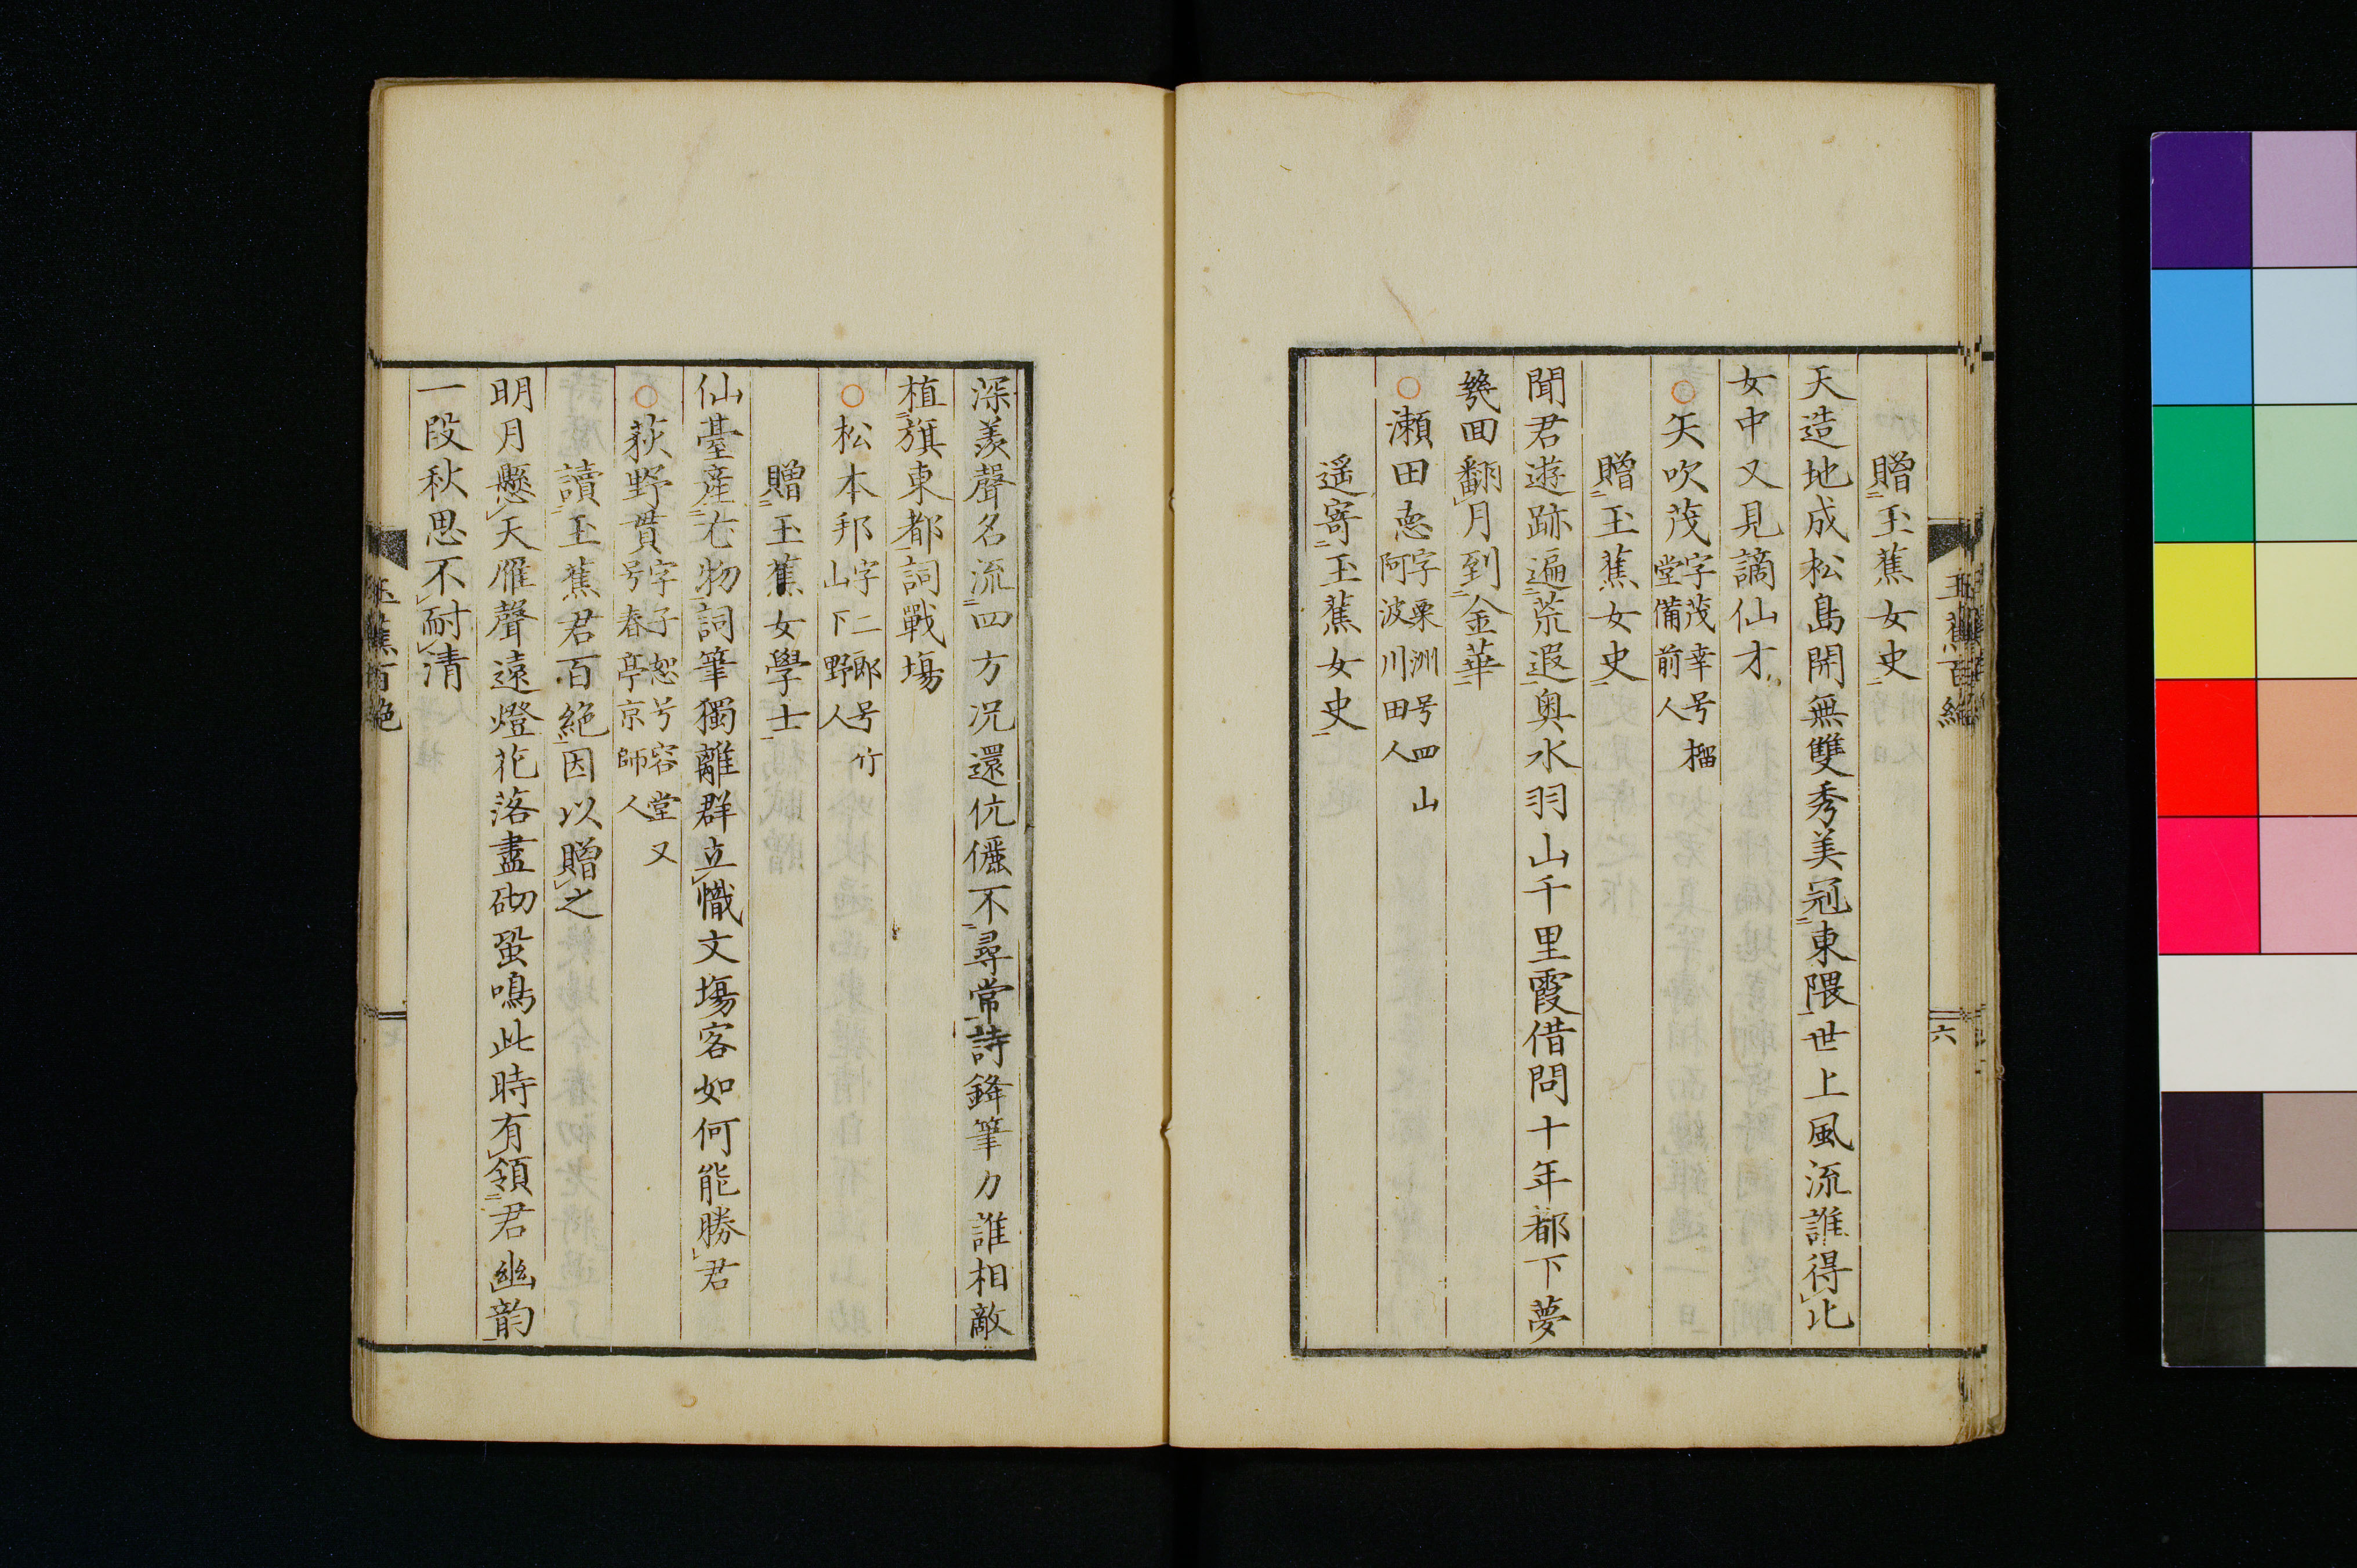 贈玉蕉女史
天造地成松島開無雙秀美冠東隈世上風流誰得比
女中又見謫仙才
○矢吹茂字茂幸号榴
堂備前人
贈玉蕉女史
聞君遊跡遍荒遐奥水羽山千里霞借問十年都下夢
幾回翻月到金華
○瀬田悳字粟洲号四山
阿波川田人
遥寄玉蕉女史
玉蕉百絶
六
深羨聲名流四方况還伉儷不尋常詩鋒筆力誰相敵
植旗東都詞戰塲
○松本邦字二郎号竹
山下野人
贈玉蕉女學士
仙臺產尤物詞筆獨離群立幟文塲客如何能勝君
○荻野貫字子恕号容堂又
号春亭京師人
讀玉蕉君百絶因以贈之
明月懸天雁聲遠燈花落盡砌蛩鳴此時有領君幽韵
一段秋思不耐清
玉蕉百絶